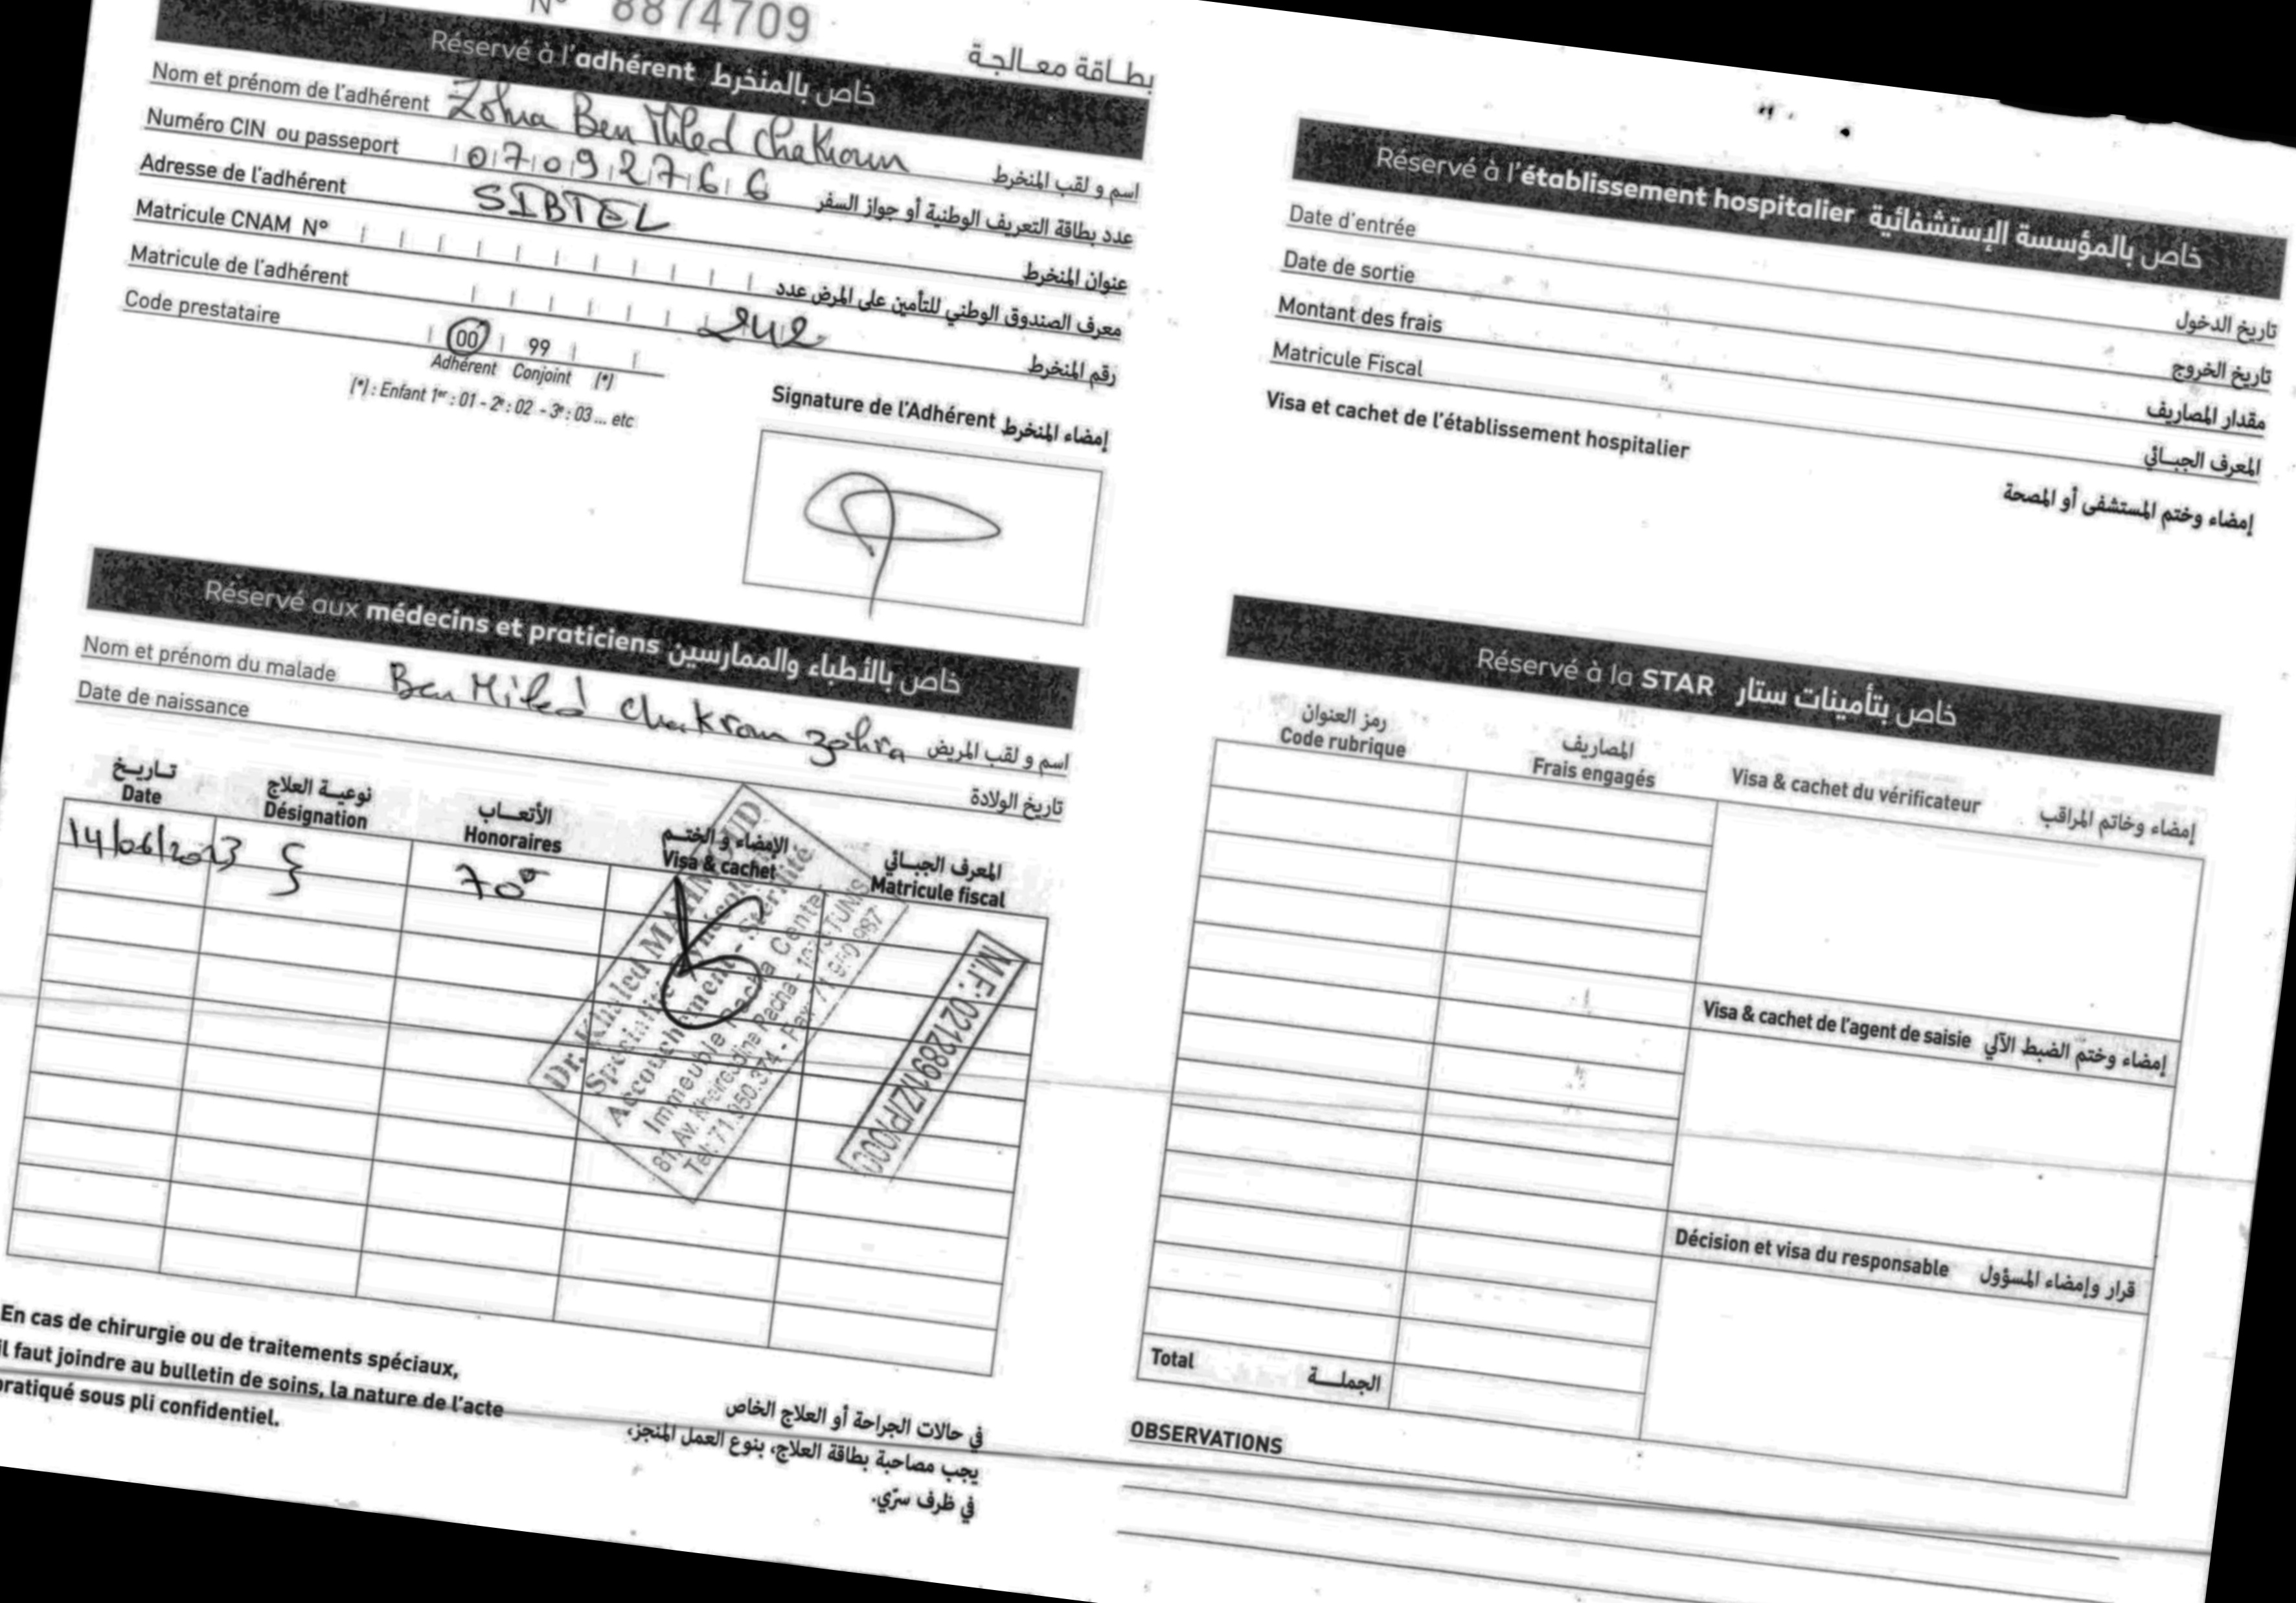 N° 8874709
بطاقة معالجة
Réservé à l'adhérent خاص بالمنخرط
Nom et prénom de l'adhérent Zohra Ben Miled Chakroun اسم و لقب المنخرط
Numéro CIN ou passeport 07092766 عدد بطاقة التعريف الوطنية أو جواز السفر
Adresse de l'adhérent SIBTEL عنوان المنخرط
Matricule CNAM N° معرف الصندوق الوطني للتأمين على المرض عدد
Matricule de l'adhérent 242 رقم المنخرط
Code prestataire 00 99
Adhérent Conjoint (*)
(*) : Enfant 1er : 01 - 2e : 02 - 3e : 03 ... etc
Signature de l'Adhérent إمضاء المنخرط
Réservé aux médecins et praticiens خاص بالأطباء والممارسين
Nom et prénom du malade Ben Miled Chakroun Zohra اسم و لقب المريض
Date de naissance تاريخ الولادة
تاريخ نوعية العلاج الأتعاب الإمضاء و الختم المعرف الجبائي
Date Désignation Honoraires Visa & cachet Matricule fiscal
14/06/2023 70
Dr. Khaled
Spécialité
Accouchement - Stérilité
Immeuble Pacha Center
81, Av. Kheireddine Pacha - TUNIS
Tél: 71 950.374 - Fax: 71 950 987
M.F: 0212891/Z/P/000
En cas de chirurgie ou de traitements spéciaux,
il faut joindre au bulletin de soins, la nature de l'acte
pratiqué sous pli confidentiel.
في حالات الجراحة أو العلاج الخاص
يجب مصاحبة بطاقة العلاج، بنوع العمل المنجز،
في ظرف سرّي.
Réservé à l'établissement hospitalier خاص بالمؤسسة الإستشفائية
Date d'entrée تاريخ الدخول
Date de sortie تاريخ الخروج
Montant des frais مقدار المصاريف
Matricule Fiscal المعرف الجبائي
Visa et cachet de l'établissement hospitalier إمضاء وختم المستشفى أو المصحة
Réservé à la STAR خاص بتأمينات ستار
رمز العنوان المصاريف
Code rubrique Frais engagés Visa & cachet du vérificateur إمضاء وخاتم المراقب
Visa & cachet de l'agent de saisie إمضاء وختم الضبط الآلي
Décision et visa du responsable قرار وإمضاء المسؤول
Total الجملة
OBSERVATIONS